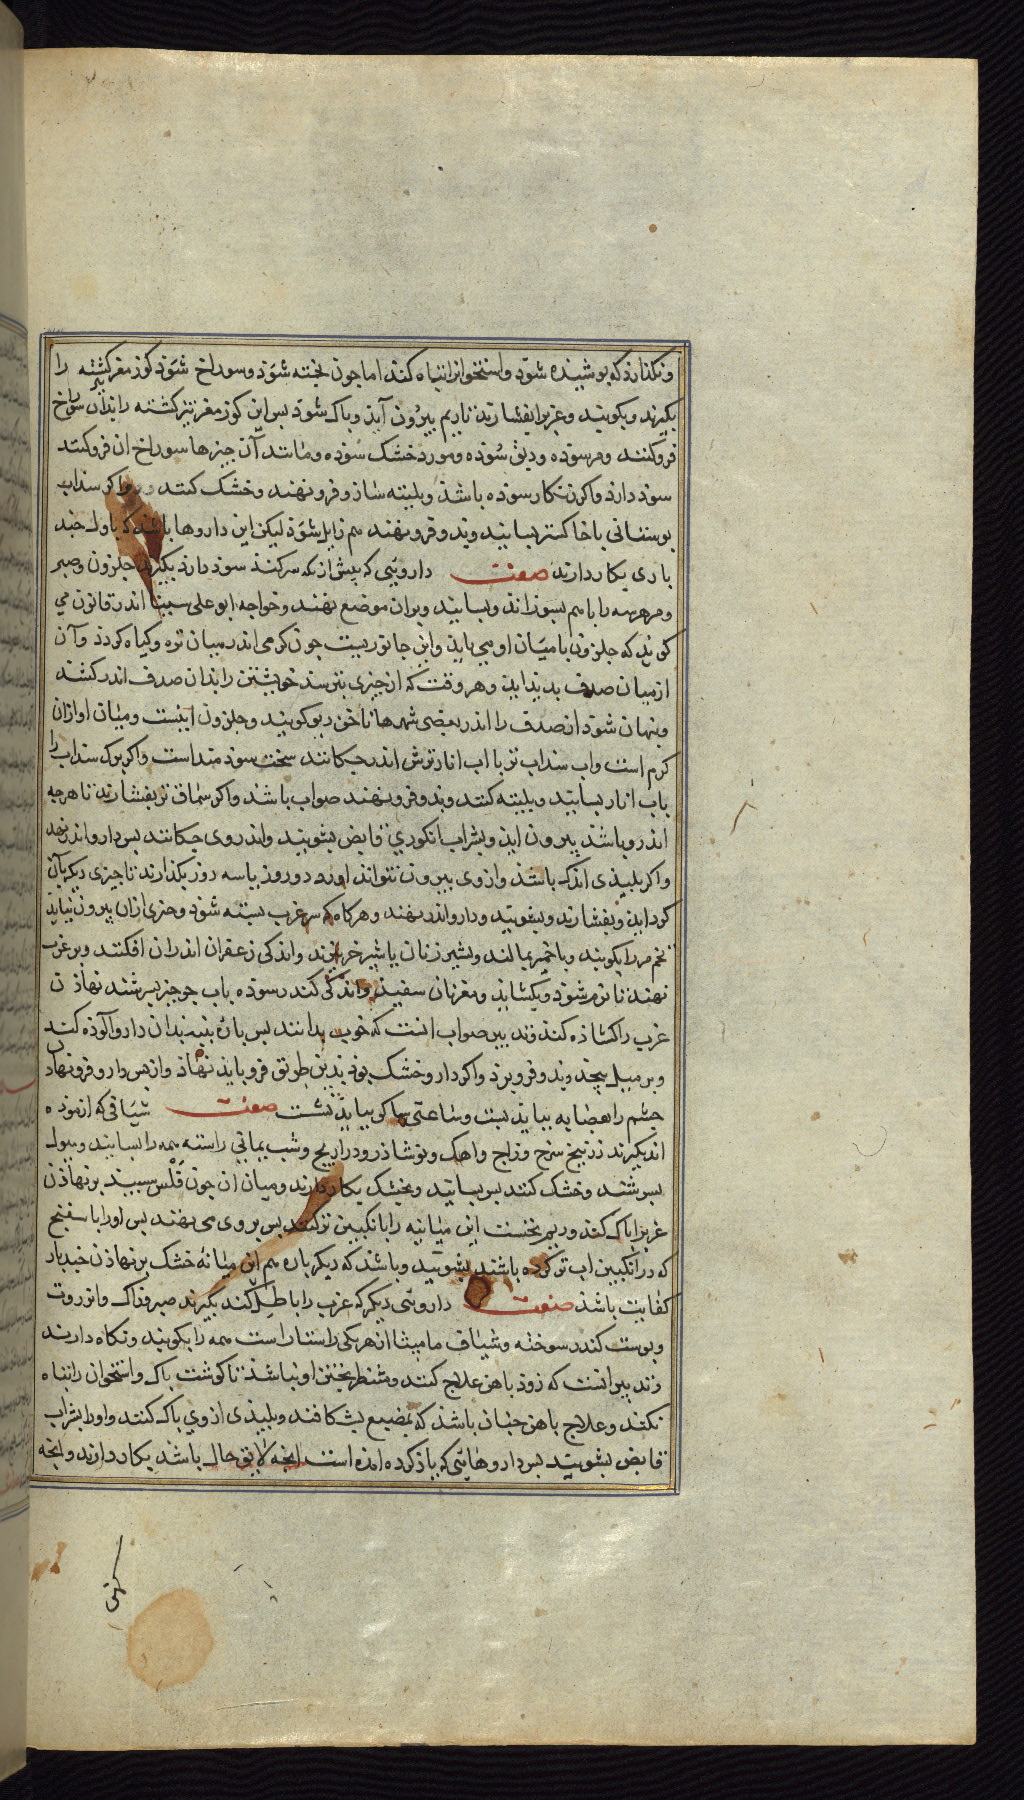 ونگذارذ که پوشیده شوذ واستخوانرا تباه کند اما چون پخته شوَذ وسوراخ شوَذ کوز مغز کشته را
بکیرند وبکوبند وغربرا بفشارند تا ریم بیرُون آیذ وباک شوذ بس این کوز مغز تیز کشته را بذان سوراخ
فرو کنند ومر سوده ودبق سُوده ومورد خشک سُوذه ومانند آن جیزها سوراخ ان فرو کنند
سوذ دارد واکر زنکار سوذه باشذ وبلیته ساز وفرو نهند وخشک کنند واکر سذاب
بوستانی با خاکستر بسایند وفرو نهند هم زایل شوَذ لیکن این داروها باشذ که باول جند
باری بکار دارند صفت داروئی که بیش از که سر کنذ سوذ دارذ بکیرند حلزون وصبر
ومر هر سه را با هم بسوزانند وبسایند وبران موضع نهند وخواجه ابو علی سینا اندر قانون می
کویذ که حلزون با میان او می باید واین جانوریست جون کرمی اندر میان تره وکیاه کردذ وآن
از میان صدف بدید اید وهر وقت که از جیزی بترسد خویشتن را بذان صدف اندر کشد
وبنهان شوذ ان صدف را اندر بعضی شهرها ناخن دیو کویند وحلزون اینست ومیان او ازان
کرم است واب سذاب تر با اب انار ترش اندر جکانند سخت سوذمند است واکر برک سذاب را
باب انار بسایند وبلیته کنند وبذو فرو نهند صواب باشد واکر سماق تر بفشارند تا هرجه
اندرو باشذ بیرون اید وبشراب انکوری قابض بشویند واندروی جکانند بس دارو اندر نهند
واکر بلیذی اندک باشذ وازوی بیرون نتواند اورد دو روز یا سه روز بکذارند تا جیزی دیکر بآن
کرد اید وبفشارند وبشویند ودارو اندر نهند وهر کاه که سر غرب بسته شوذ وجیزی ازان بیرون نیاید
تخم مرر بکوبند وبا خمیر بمالند وبشیر زنان یا شیر خر واندکی زعفران اندران افکنند وبر غرب
نهند تا نرم شوذ وبکشاید ومغز نان سفیذ واندکی کندر سوذه باب جوجیز بسرشند نهاذن
غرب را کشاذه کند وتدبیر صواب انست که خوب بدانند بس باره بنبه بدان دارو آلوذه کنند
وبر میل بیجند وبذو فرو برذ واکر دارو خشک بوذ بذین طریق فرو باید نهاذ وازبس دارو فرو نهادن
جشم را بعصابه بباید بست وساعتی نیکو بباید نشست صفت شیافی که ازموده
اند بکیرند زرنیخ سرخ وزاج واهک ونوشاذر وذراریح وشب یمانی راستا راست همه را بسایند وببول
بسرشند وخشک کنند بس بسایند وخشک بکار دارند ومیان ان جون فلس سبید بر نهاذن
غربرا باک کند وریم نخست این میانه را بانکبین تر کنند بس بروی می نهند بس اورا باسفنج
که در انکبین اب تر کرده باشند بشویند وباشد که دیکر باره هم این میانه خشک بر نهاذن جند بار
کفایت باشذ صفت داروئی دیکر که غرب را باطل کند بکیرند صبر وزاک وانزروت
وبوست کندر سوخته وشیاف مامیثا از هر یکی راستا راست همه را بکوبند ونکاه دارند
وتدبیر انست که زوذ باهن علاج کنند ومنتظر بختن او نباشند تا کوشت باک واستخوان را تباه
نکند وعلاج باهن جنان باشذ که بمبضع بشکافند وبلیذی ازوی باک کنند واورا بشراب
قابض بشویند بس داروهائی که یاذ کرده امده است انجه لایق حال باشد بکار دارند وانجه